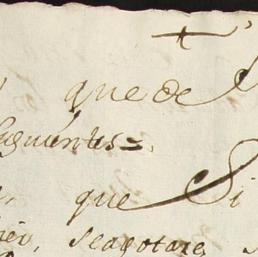 que de
siguientes =.
que Si
seacotare,